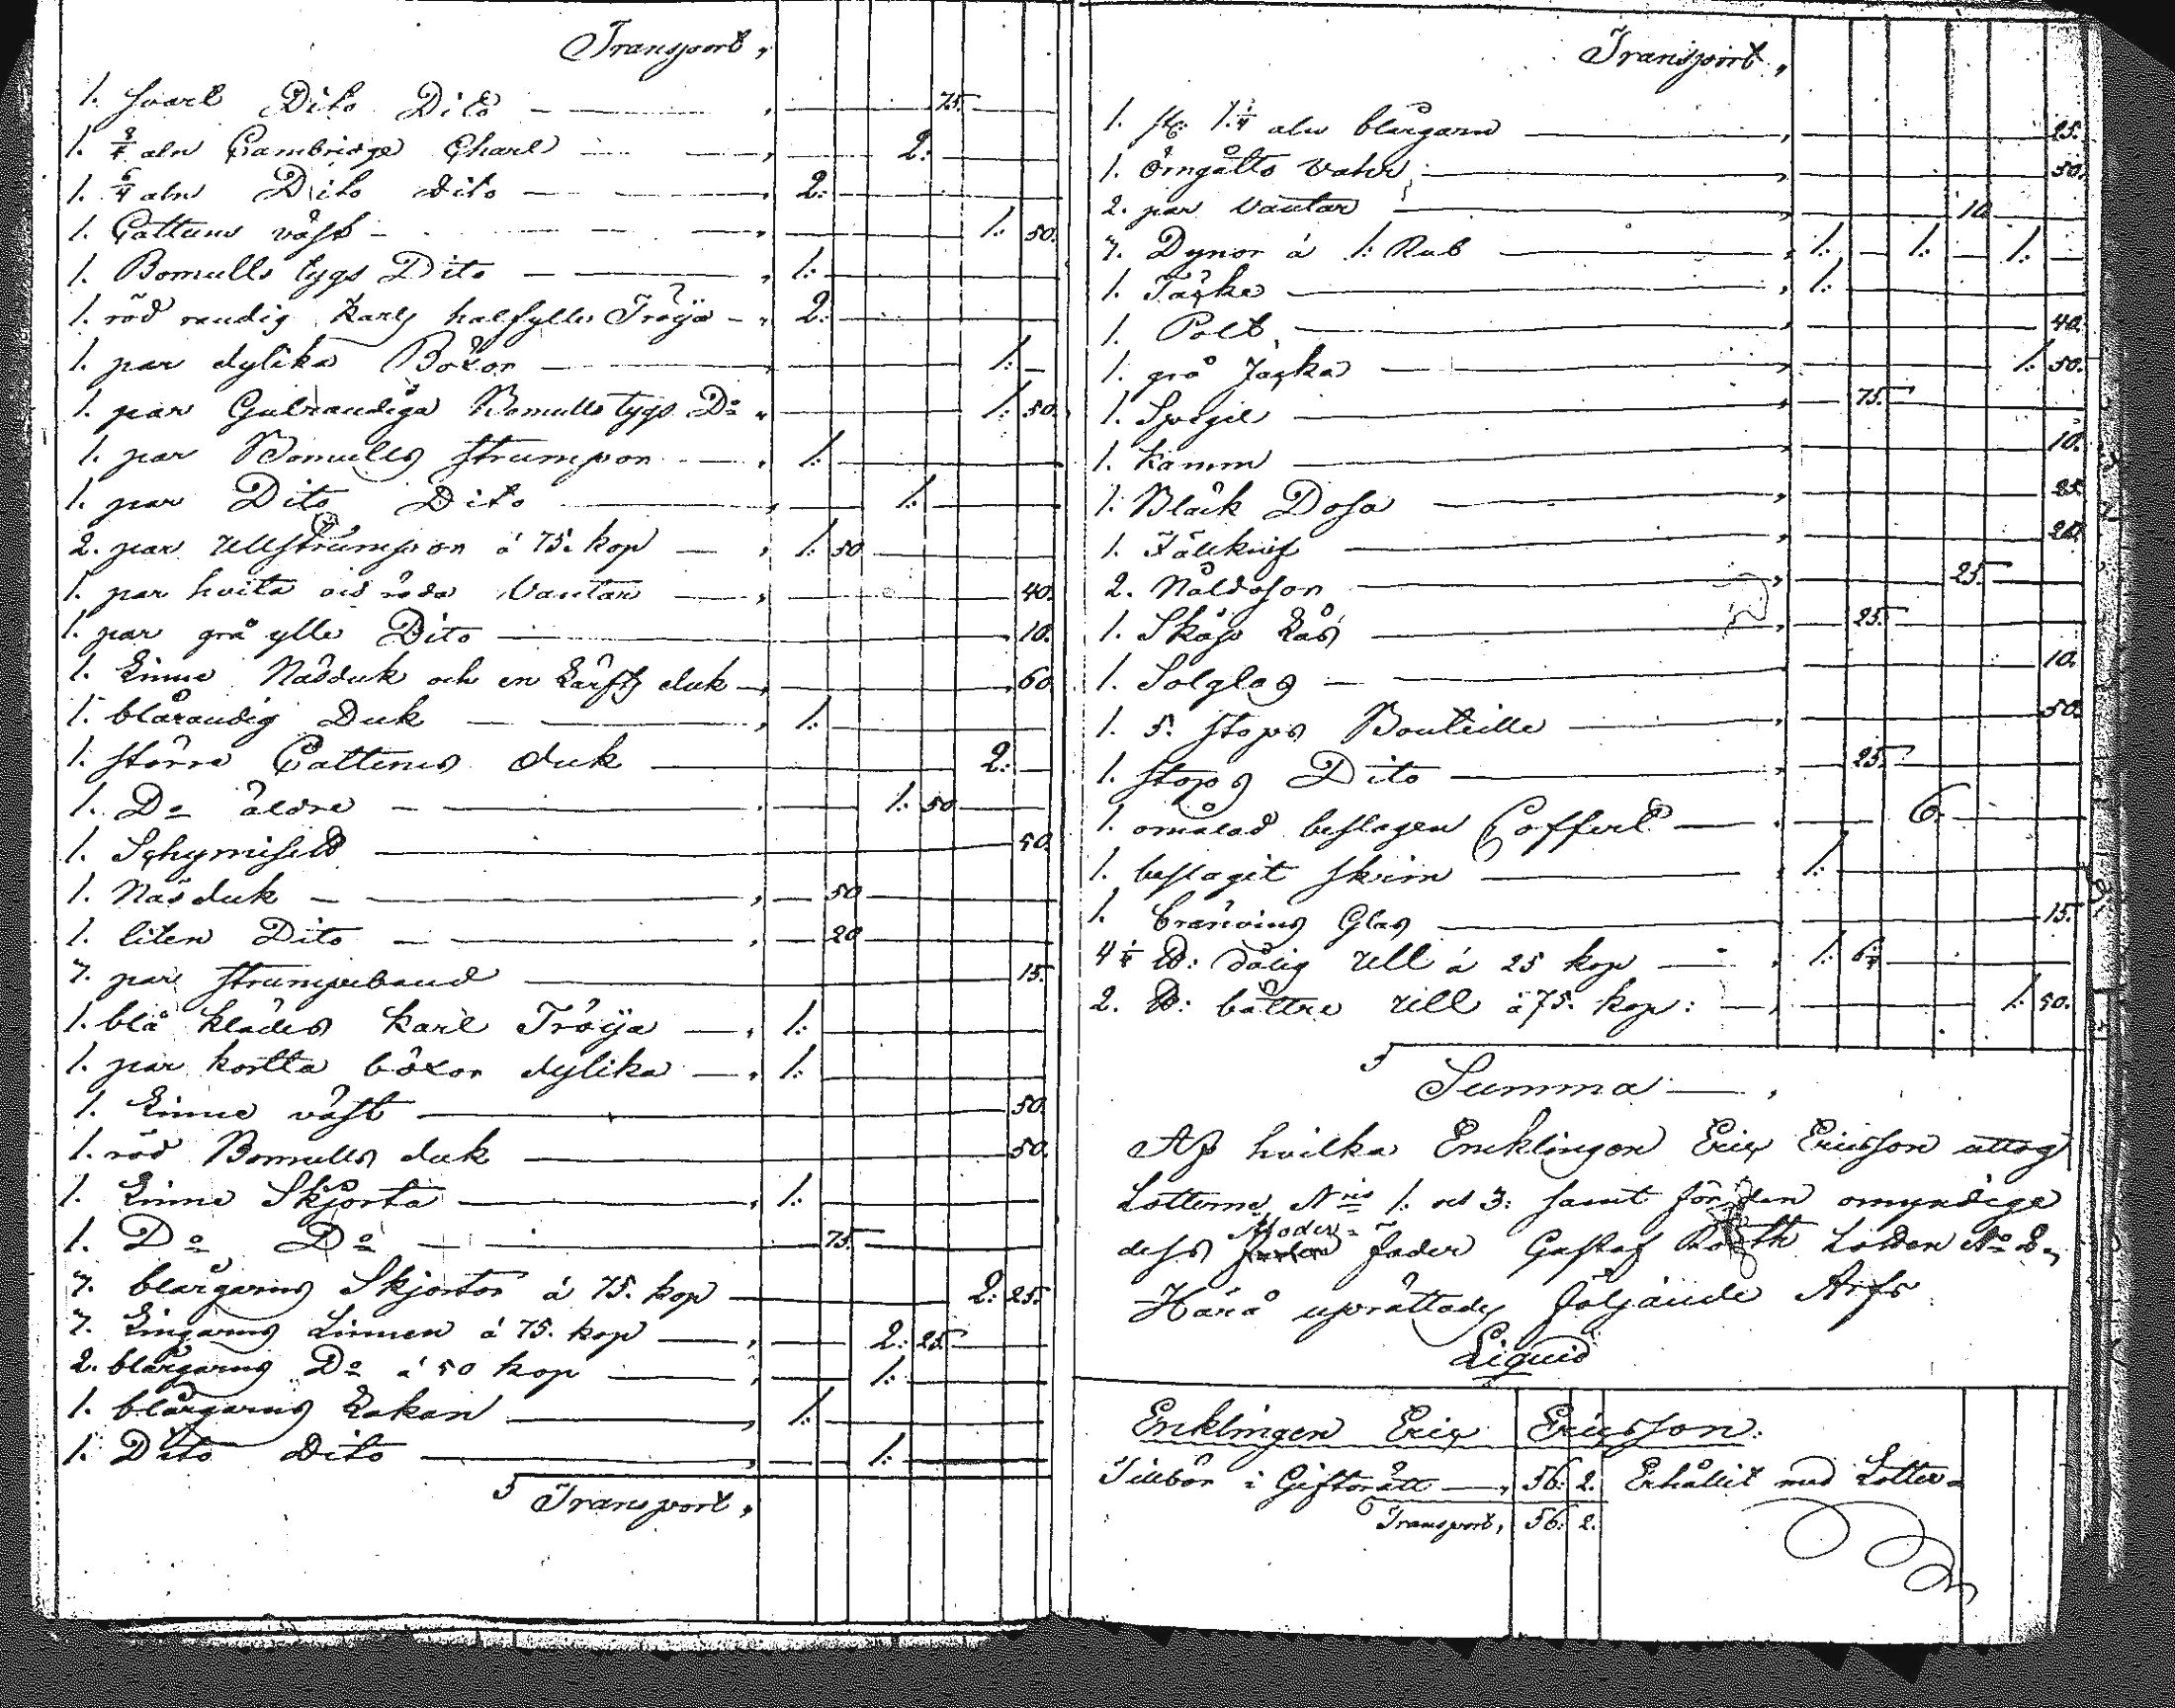 Transport,
1. svart Dito Dito — , — 75. —
1. 8/4 aln Cambridge Charl — , — 2: —
1. 6/4 aln Dito dito — , 2: —
1. Cattuns väst — , — 1: 50.
1. Bomulls tygs Dito — , 1: —
1. röd randig karls halfylle Tröija — , 2: —
1. par dylika Böxor — 1: —
1. par Gulrandiga Bomulls tygs Do , — 1: 50.
1. par Bomulls strumpor — , 1: —
1. par Dito Dito — , — 1: —
2. par Ullstrumpor á 75. kop — , 1: 50 —
1. par hvita oc röda Vantar — , — 40.
1. par grå ylle Dito — 10.
1. Linne Näsduk och en Lärfts duk — , — 60
1. blårandig Duk — , 1: —
1. större Cattuns duk — 2: —
1. Do äldre — , — 1: 50 —
1. Schymisett — 50.
1. Näsduk — , — 50 —
1. liten Dito — , — 20 —
7. par strumpeband — 15.
1. blå klädes karl Tröija — , 1: —
1. par kortta böxor dylika — , 1: —
1. Linne väst — 50.
1. röd Bomulls duk — 50.
1. Linne Skjorta — , 1: —
1. Do Do — 75. —
7. blårgarns Skjortor á 75. kop — 2: 25.
7. Lingarns Linnen á 75. kop — , — 2: 25 —
2. blårgarns Do á 50 kop — , — 1: —
1. blårgarns Lakan — , 1: —
1. Dito dito — , — 1: —
Transport,
Transport,
1. st: 1. 1/4 aln blårgarn — , — 25.
1. — 50.
2. par Vantar — , — 10
7. Dynor á 1: Rub — , 1: — 1: — 1: —
1. Täcke — , 1: —
1. Polt — , — 40.
1. grå Jacka — , — 1: 50.
1. Spegel — , 75. —
1. Kamm — 10.
1. Bläck Dosa — , — 25
1. Fällknif — , — 20.
2. Nåldosor — , — 25. —
1. Skåp Lås — , 25. —
1. Solglas — 10.
1. 5. stops Bouteille — , — 50.
1. stops Dito — , 25. —
1. omålad beslagen Coffert — , — 6. —
1. beslagit skrin — , 1: —
1. bränvins Glas — 15.
4 1/4 ℔: dålig Ull á 25 kop — , 1: 6 1/4 —
2. ℔: bättre Ull á 75. kop: — , — 1: 50.
Summa — ,
Af hvilka Encklingen Eric Ericsson uttog
Lotterne Nris 1: och 3: samt för den omyndige
dess Moder-
fader Gustaf Lotten No 2.,
Härå uprättades följande Arfs
Liquid
Encklingen Eric Ericsson.
Tillbör i Giftorätt — , 56: 2. Erhållit med Lotter-
Transport, 56: 2.